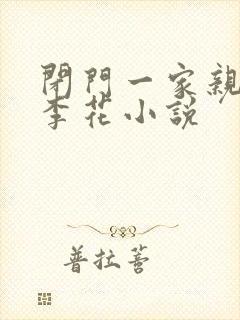 閉門一家親
李花小說
普拉蒼